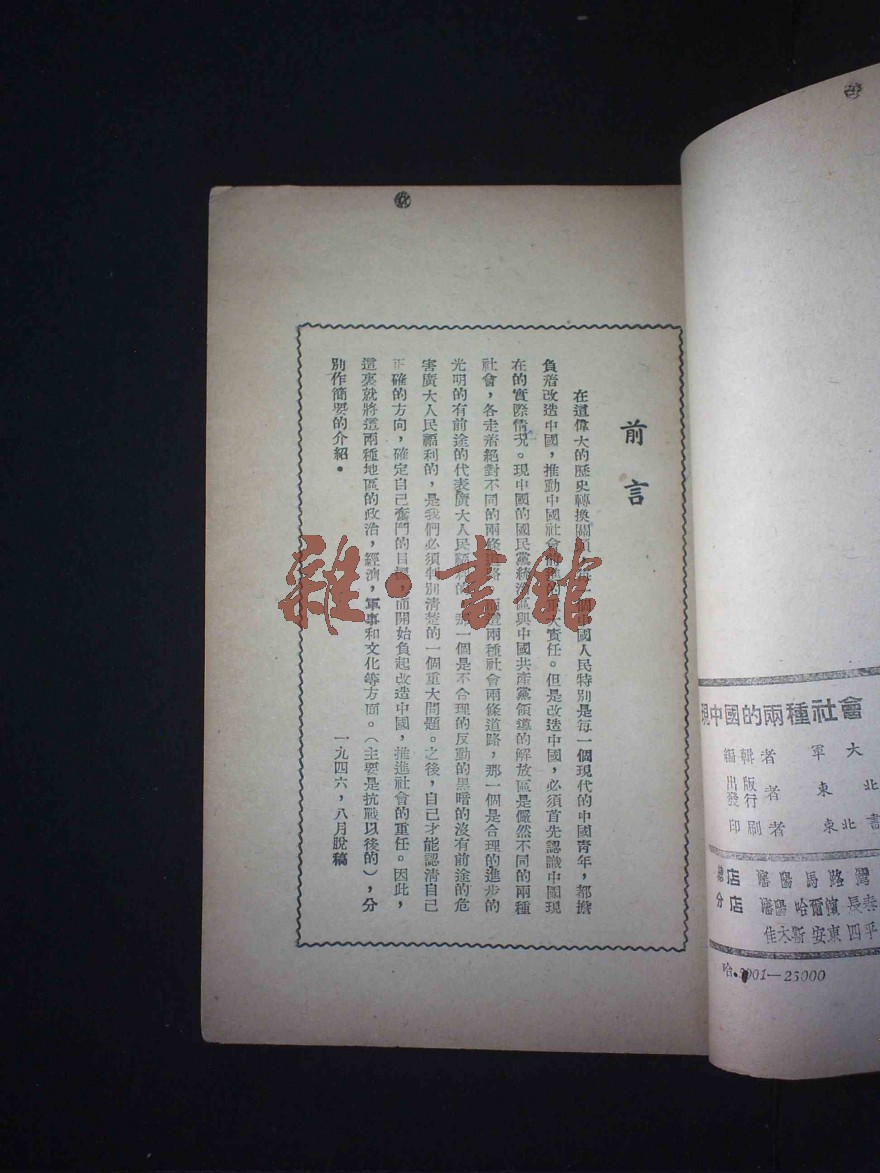 前言
在這偉大的歷史轉換關頭 每一個中國人民特別是每一個現代的中國青年，都擔
負着改造中國，推動中國社會 重大責任。但是改造中國，必須首先認識中國現
在的實際情況。現中國的國民黨統治區與中國共產黨領導的解放區是儼然不同的兩種
社會，各走着絕對不同的兩條道路 這兩種社會兩條道路，那一個是合理的進步的
光明的有前途的代表廣大人民 的 那一個是不合理的反動的黑暗的沒有前途的危
害廣大人民福利的，是我們必須特別清楚的一個重大問題。之後，自己才能認清自己
正確的方向，確定自己奮鬥的目 而開始負起改造中國，推進社會的重任。因此，
這裏就將這兩種地區的政治，經濟，軍事和文化等方面。（主要是抗戰以後的），分
別作簡要的介紹。
一九四六，八月脫稿
雜·書館
現中國的兩種社會
編輯者 軍大
出版發行者 東北
印刷者 東北書
總店 瀋陽馬路灣
分店 瀋陽 哈爾濱 長春
佳木斯 安東 四平
哈· 001—25000